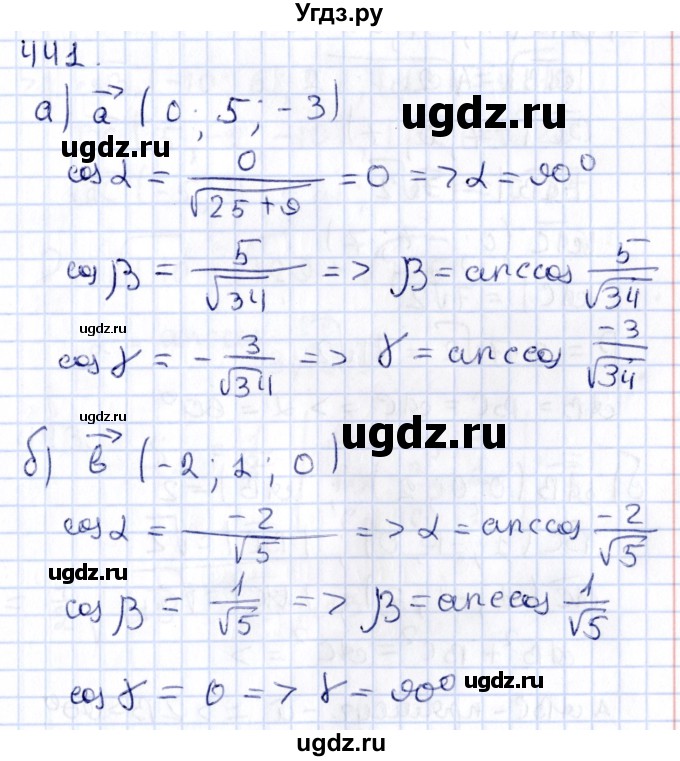 Угдз.ру
441.
а) a⃗ (0; 5; -3)
ugdz.ru
ugdz.ru
cos α = 0/√(25+9) = 0 => α = 90⁰
cos β = 5/√34 => β = arccos 5/√34
ugdz.ru
cos γ = - 3/√34 => γ = arccos -3/√34
ugdz.ru
ugdz.ru
б) b⃗ (-2; 1; 0)
cos α = -2/√5 => α = arccos -2/√5
ugdz.ru
cos β = 1/√5 => β = arccos 1/√5
cos γ = 0 => γ = 90⁰
ugdz.ru
ugdz.ru